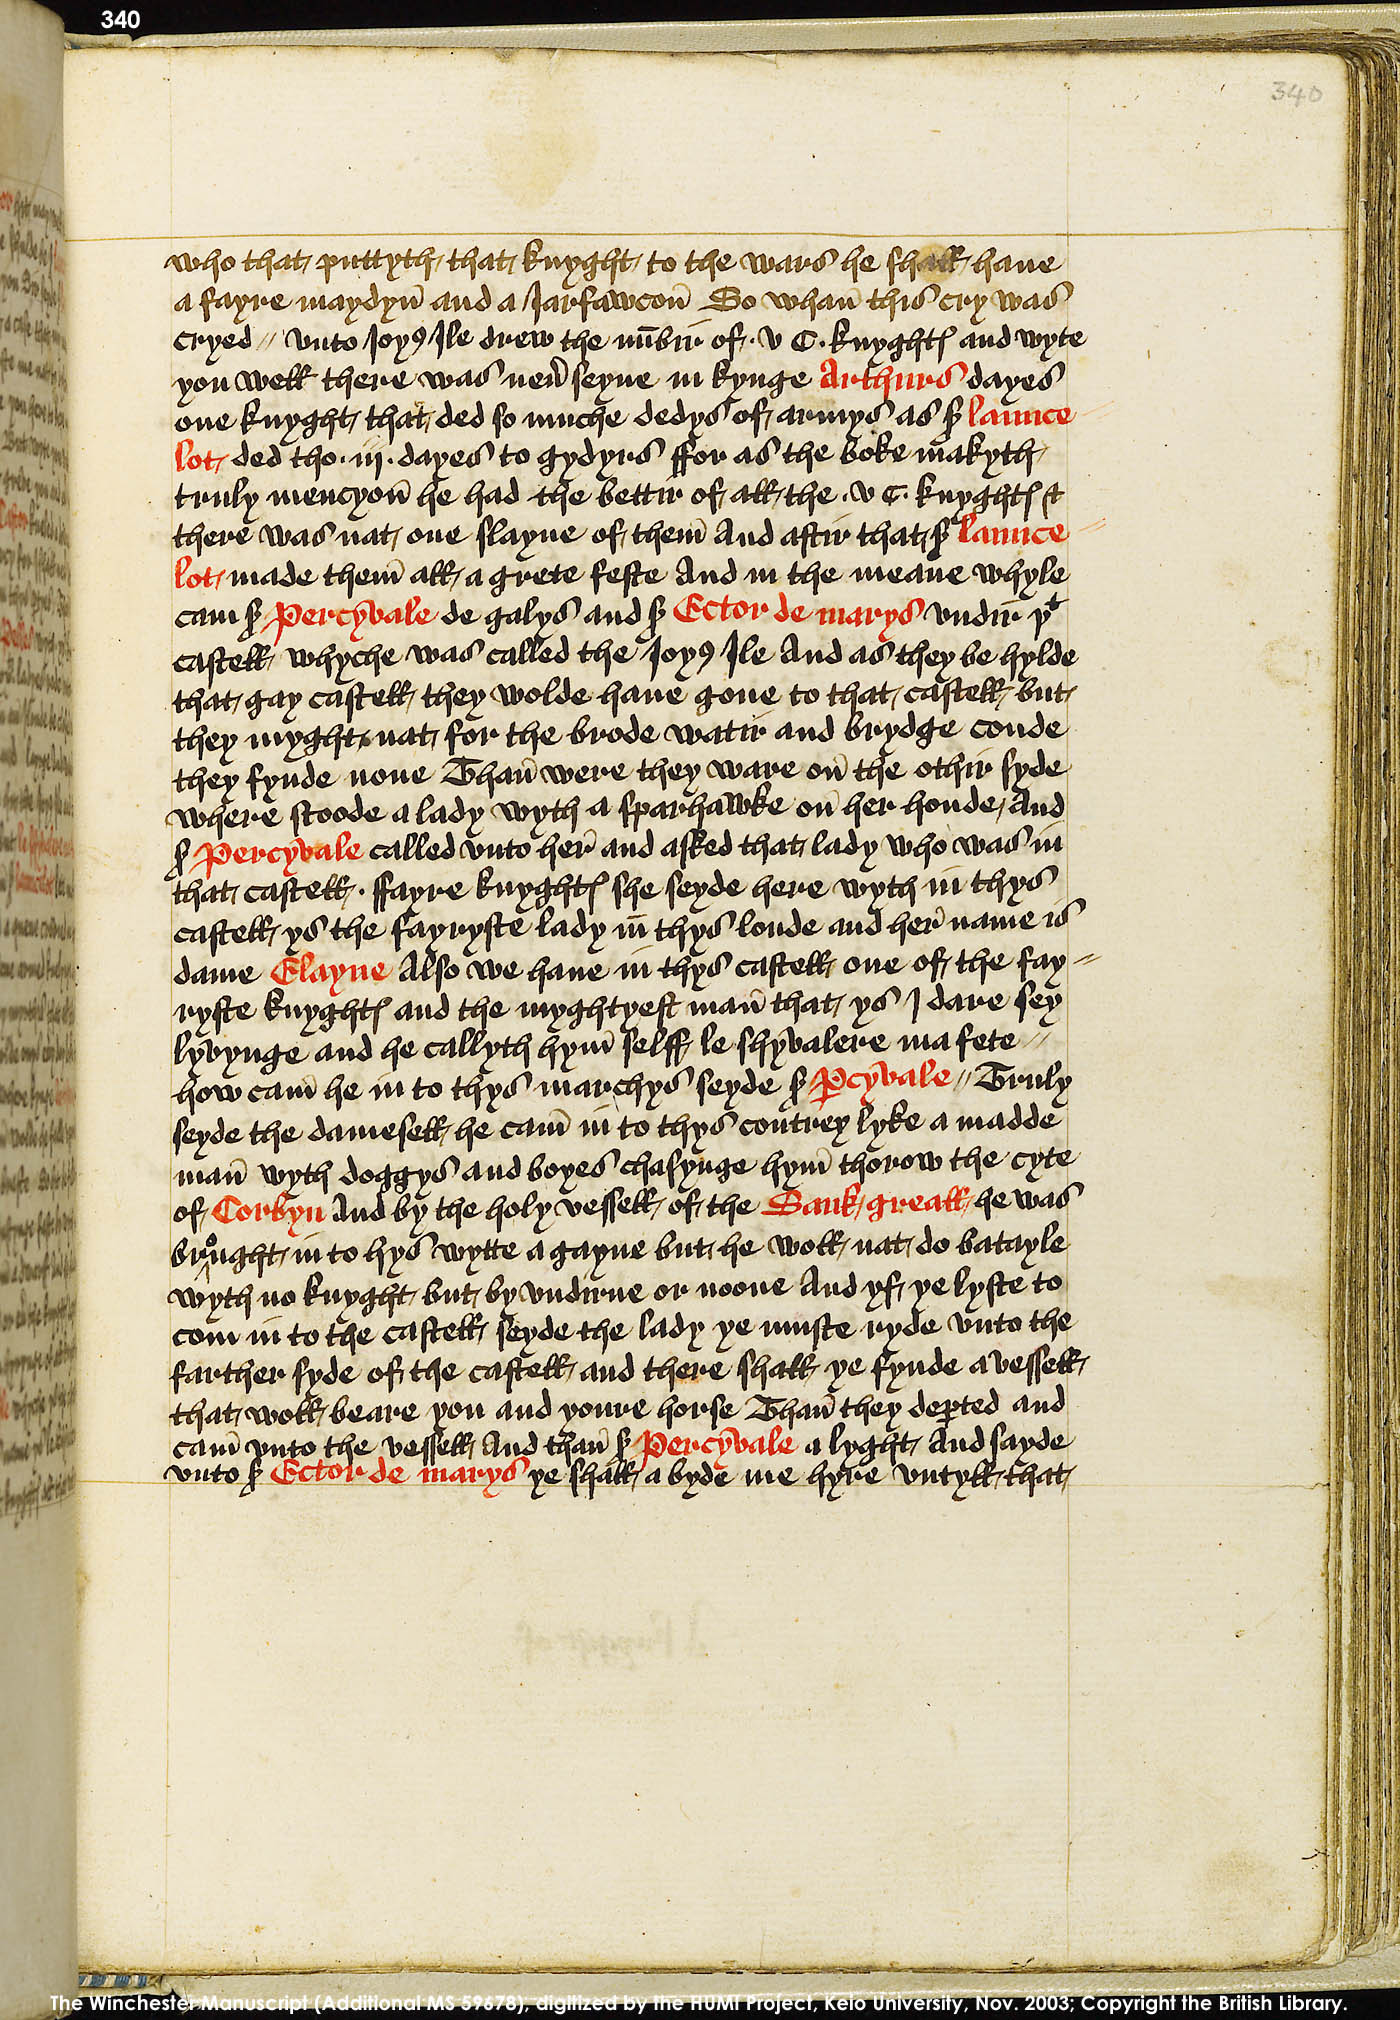 340
340
who that puttyth that knyght to the wars he shall haue
a fayre maydyn̄ and a Jarfawcon̄ So whan̄ this cry was
cryed // vnto Joyꝯ Jle drew the nūbir of · v C · knyghtꝭ and wyte
you well there was neū seyne in kynge Arthurs dayes
one knyght that ded so muche dedys of armys as sr̄ launce
lot ded tho · iij · dayes to gydyrs ffor as the boke makyth
truly mencyon̄ he had the bettir of all the · v C · knyghtꝭ &
there was nat one slayne of them̄ And aftir that sr̄ launce
lot made them̄ all a grete feste And in the meane whyle
cam sr̄ Percyvale de galys and sr̄ Ector de marys vndir yᵗ
castell whyche was called the Joyꝯ Jle And as they be hylde
that gay castell they wolde haue gone to that castell but
they myght nat for the brode watir and brydge coude
they fynde none Than̄ were they ware on̄ the othir syde
where stoode a lady wyth a sparhawke on̄ her honde / And
sr̄ Percyvale called vnto her̄ and asked that lady who was in
that castell · ffayre knyghtꝭ she seyde here wyth in thys
castell ys the fayryste lady in̄ thys londe and her̄ name is
dame Elayne Also we haue in thys castell one of the fay //
ryste knyghtꝭ and the myghtyest man̄ that ys J dare sey
lyvynge and he callyth hym̄ selff le shyvalere ma fete //
how cam̄ he in to thys marchys seyde sr̄ ꝑcyvale // Truly
seyde the damesell he cam̄ in to thys contrey lyke a madde
man̄ wyth doggys and boyes chasynge hym̄ thorow the cyte
of Corbyn And by the holy vessell of the Sank greall he was
brought in to hys wytte a gayne but he woll nat do batayle
wyth no knyght but by vndirne or noone And yf ye lyste to
com in to the castell seyde the lady ye muste ryde vnto the
farther syde of the castell and there shall ye fynde a vessell
that woll beare you and youre horse Than̄ they deꝑted and
cam̄ vnto the vessell And than̄ sr̄ Percyvale a lyght And sayde
vnto sr̄ Ector de marys ye shall a byde me hyre vntyll that
The Winchester Manuscript (Additional MS 59678), digitized by the HUMI Project, Keio University, Nov. 2003; Copyright the British Library.